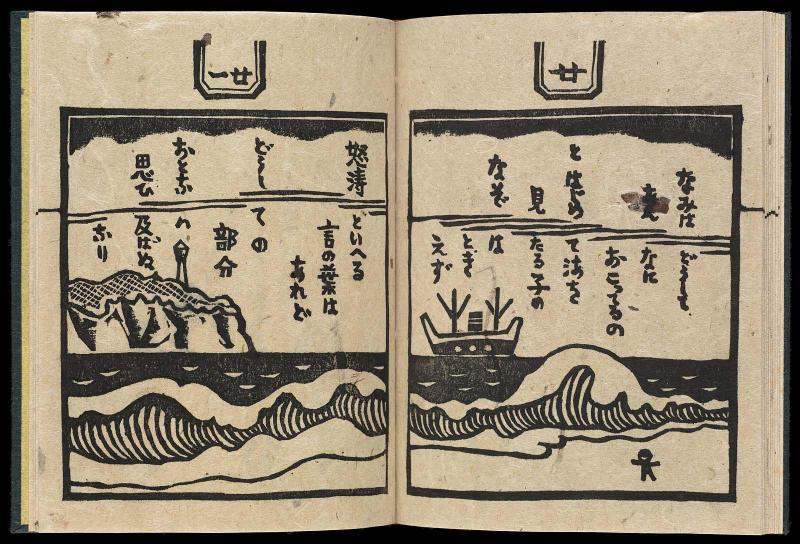 廿
なみは どうして、
なに
おこってるの
とはじめて海を
見たる子の
なぞは とき
えず
廿一
怒涛といへる
言の葉は
あれど
どうしての
部分
おとなハ
思ひ及ばぬ
なり